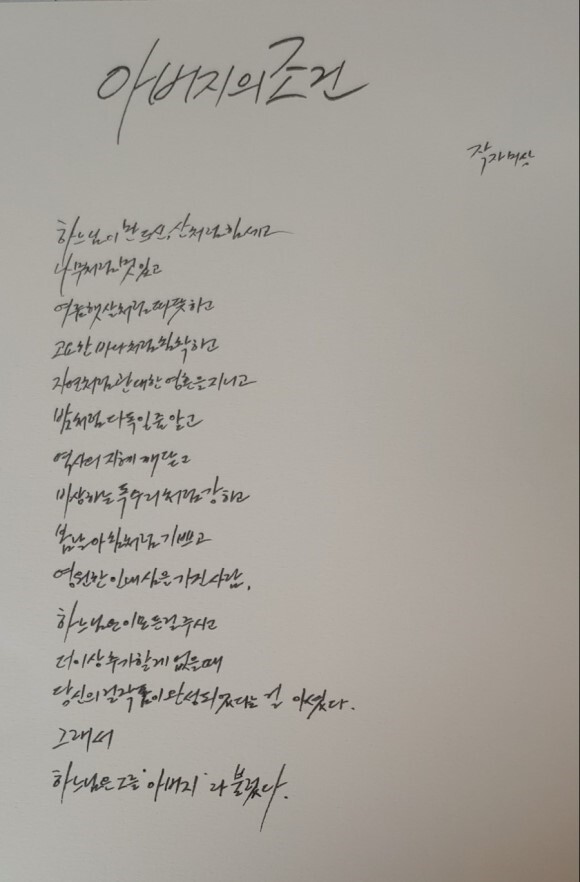 아버지의 조건
작자미상
하느님이 만드신, 산처럼 힘세고
나무처럼 멋있고
여름햇살처럼 따뜻하고
고요한 바다처럼 침착하고
자연처럼 관대한 영혼을 지니고
밤처럼 다독일 줄 알고
역사의 지혜 깨닫고
비상하는 독수리처럼 강하고
봄날 아침처럼 기쁘고
영원한 인내심을 가진 사람,
하느님은 이 모든걸 주시고
더이상 추가할게 없을때
당신의 걸작품이 완성되었다는 걸 아셨다.
그래서
하느님은 그를 "아버지"라 불렀다.